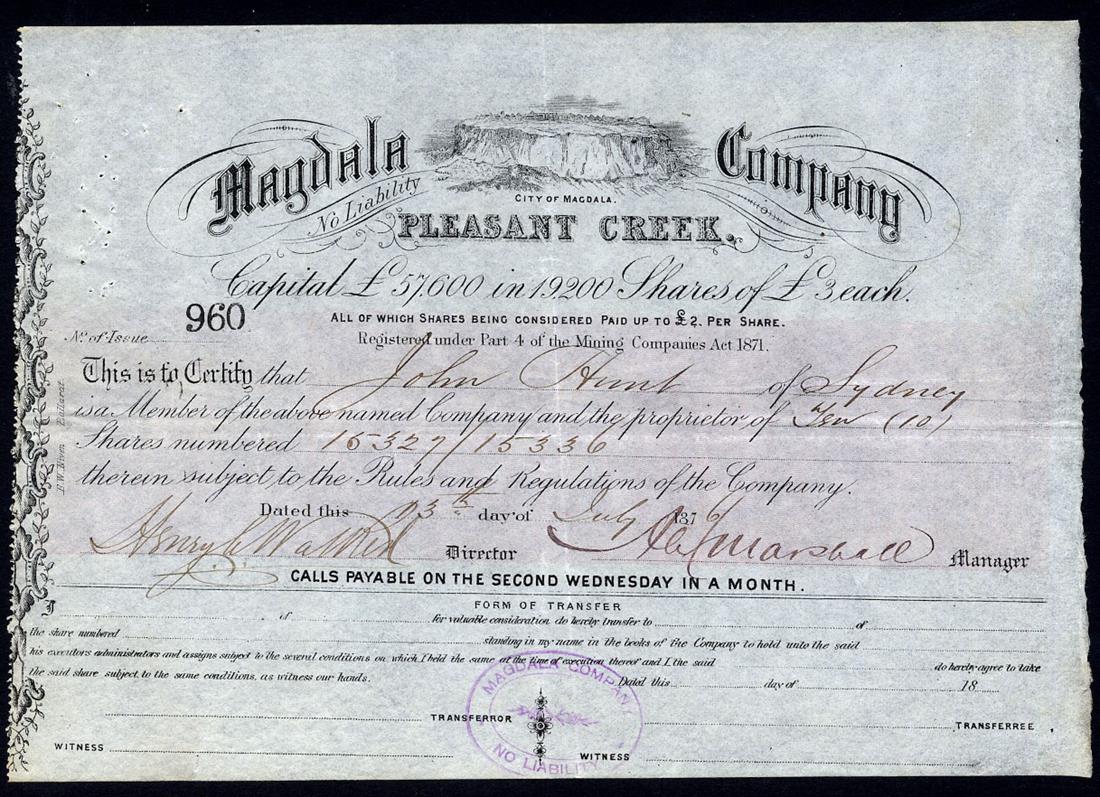 Magdala Company
No Liability
CITY OF MAGDALA.
PLEASANT CREEK.
Capital £57,600 in 19,200 Shares of £3 each.
ALL OF WHICH SHARES BEING CONSIDERED PAID UP TO £2. PER SHARE.
960
No. of Issue
Registered under Part 4 of the Mining Companies Act 1871.
This is to Certify that John Hunt of Sydney
is a Member of the above named Company and the proprietor of Ten (10)
Shares numbered 15327/15336
therein subject to the Rules and Regulations of the Company.
Dated this 13th day of July 1876
Director
Marshall Manager
CALLS PAYABLE ON THE SECOND WEDNESDAY IN A MONTH.
FORM OF TRANSFER
of for valuable consideration do hereby transfer to of
the share numbered standing in my name in the books of the Company to hold unto the said
his executors administrators and assigns subject to the several conditions on which I held the same at the time of execution thereof and I the said do hereby agree to take
the said share subject to the same conditions, as witness our hands. Dated this day of 18
TRANSFERROR TRANSFERREE
WITNESS WITNESS
MAGDALA COMPANY
NO LIABILITY